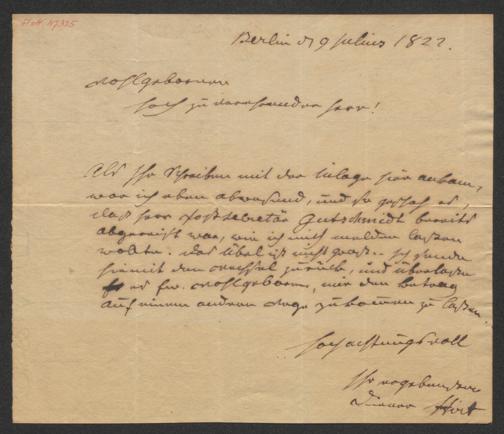 Berlin d 9 Julius 1822.
Wohlgeborener
Hoch zu verehrender Herr!
Als Ihr Schreiben mit der Inlage hier ankam,
war ich eben abwesend, und so geschah es,
daß Herr Hofsecretär Gutschmidt bereits
abgereist war, wie ich mich melden lassen
wollte. Das Übel ist nicht groß. Ich sende
hiemit den Wechsel zurück, und überlasse
es Ew. Wohlgeboren, mir den Betrag
auf einem anderen Wege zukommen zu lassen.
Hochachtungsvoll
Ihr ergebenster
Diener Hirt